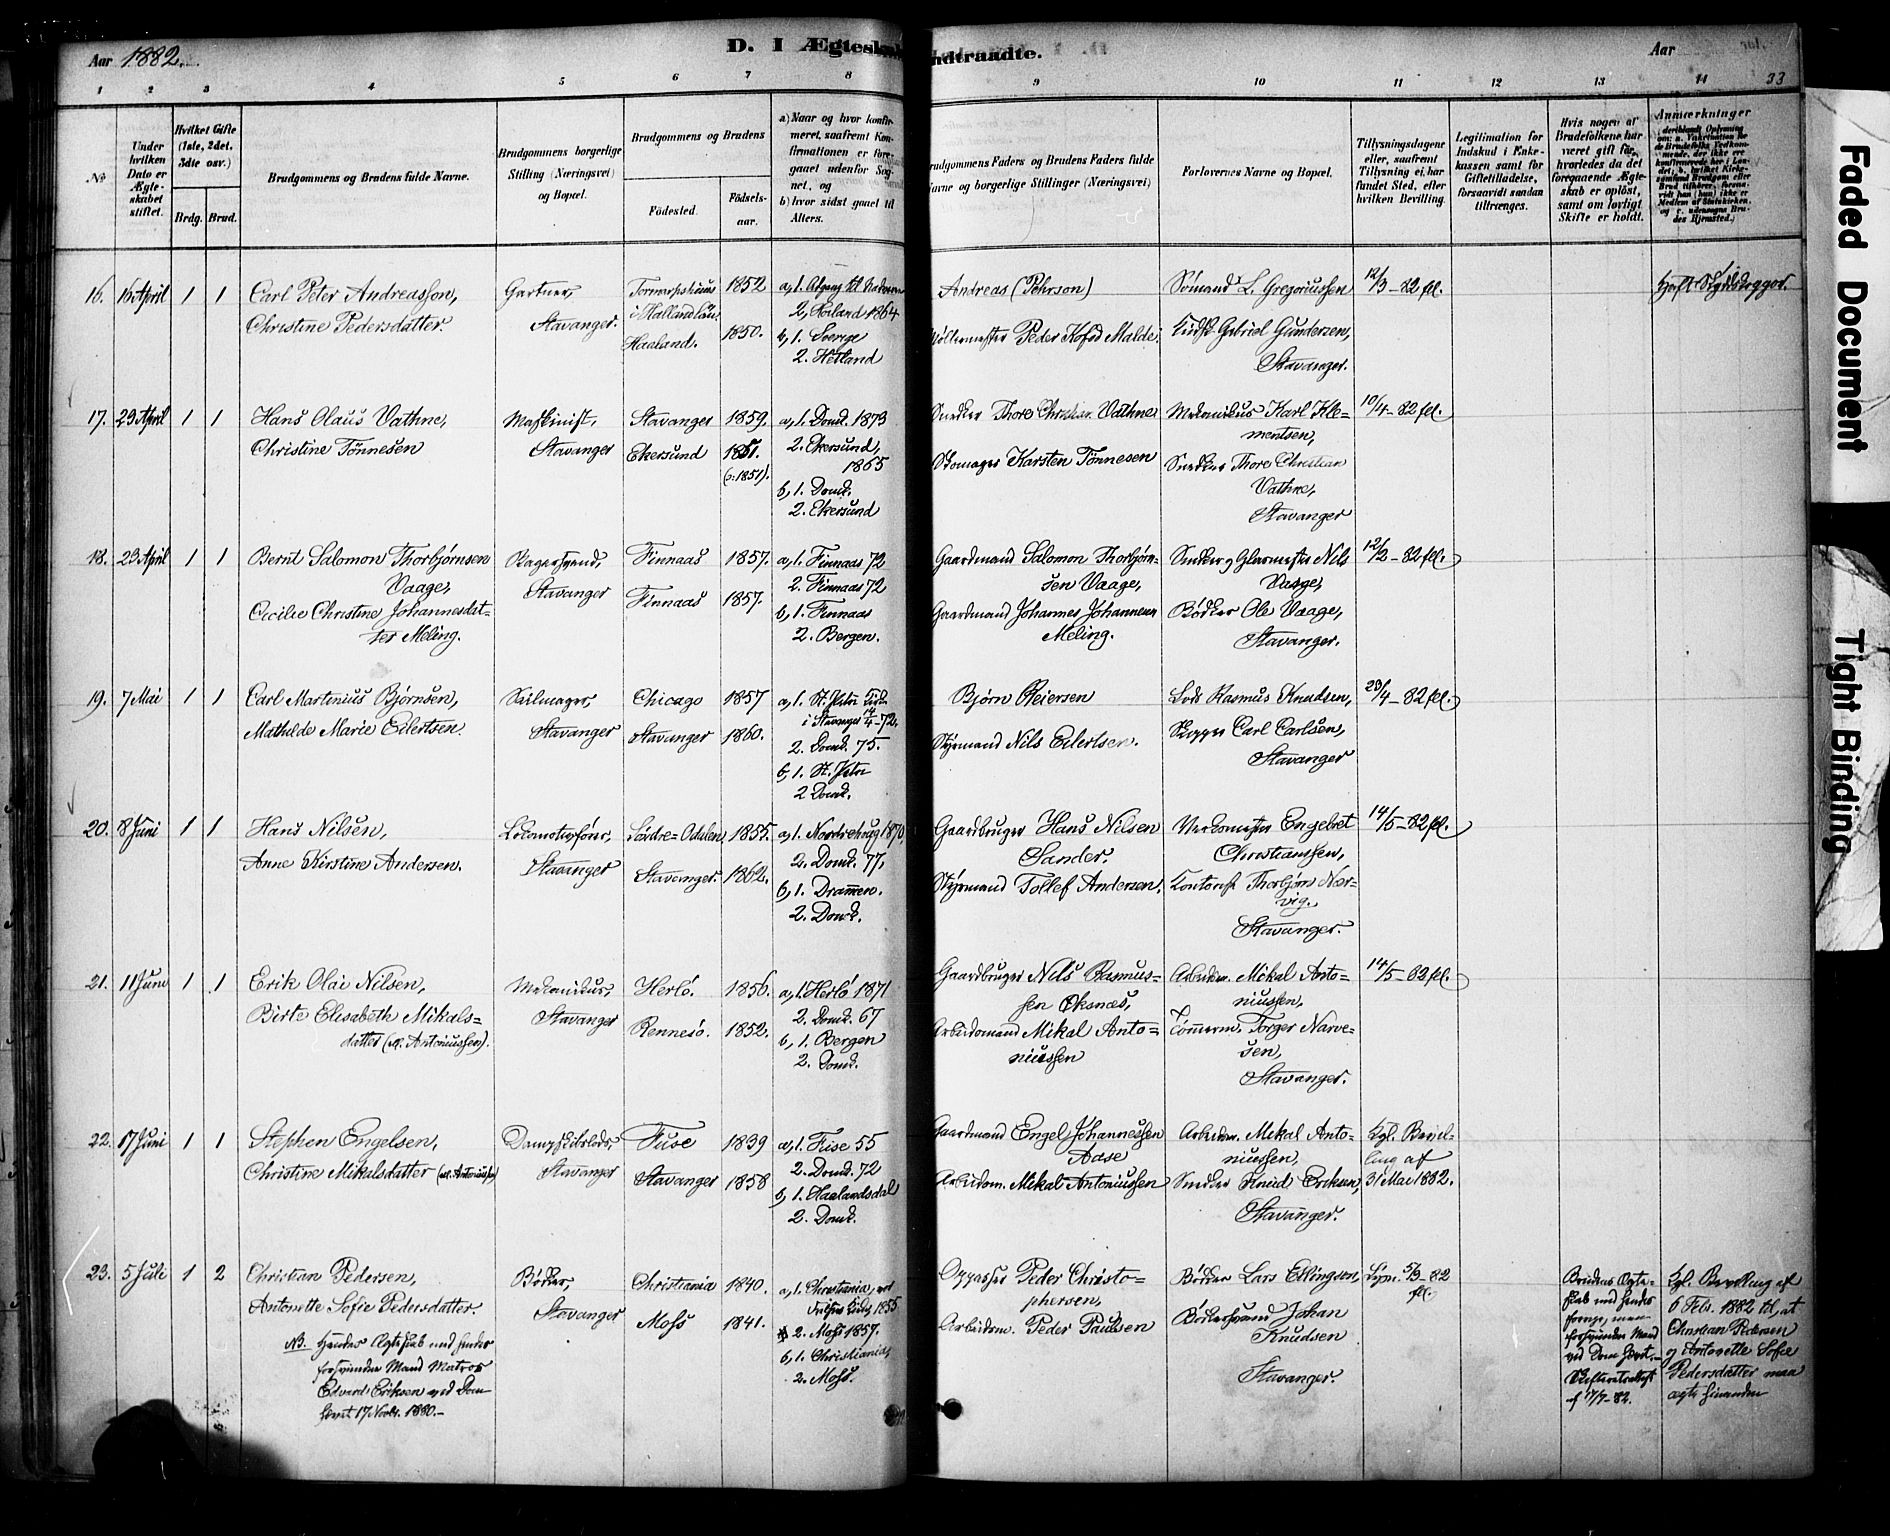 Aar 1882.
D. I Ægteskab Indtraadte.
Aar
33
1 2 3 4 5 6 7 8 9 10 11 12 13 14
No
Under hvilken Dato er Ægteskabet stiftet.
Hvilket Gifte (1ste, 2det, 3die osv.)
Brdg. Brud.
Brudgommens og Brudens fulde Navne.
Brudgommens borgerlige Stilling (Næringsvei) og Bopæl.
Brudgommens og Brudens
Fødested.
Fødsels-aar.
a) Naar og hvor konfirmeret, saafremt Konfirmationen er foregaaet udenfor Sognet, og
b) hvor sidst gaaet til Alters.
Brudgommens Faders og Brudens Faders fulde Navne og borgerlige Stillinger (Næringsvei)
Forlovernes Navne og Bopæl.
Tillysningsdagene eller, saafremt Tillysning ei har fundet Sted, efter hvilken Bevilling.
Legitimation for Indskud i Enkekassen samt for Giftetilladelse, forsaavidt saadan tiltrænges.
Hvis nogen af Brudefolkene har været gift før, hvorledes da det foregaaende Ægteskab er opløst, samt om lovligt Skifte er holdt.
Anmærkninger
16. 16 April 1 1
Carl Peter Andreasson,
Christine Pedersdatter.
Gartner,
Stavanger.
i Halland Län.
Haaland.
1852
1850.
2, Haaland 1864
b, 1. Sverige
2. Hetland
Andreas (Pehrson)
Møllermester Peder Kofod Malde.
Sømand L. Gregoriussen
Gabriel Gundersen,
Stavanger.
12/3-82 fl.
17. 23 April 1 1
Hans Olaus Vathne,
Christine Tönnesen
Maskinist,
Stavanger
Stavanger
Ekersund
1859.
1851.
(ɔ: 1851).
a, 1. Domk. 1873
2. Ekersund,
1865
b, 1. Domk.
2. Ekersund
Snedker Thore Christian Vathne
Skomager Karsten Tönnesen
Mekanikus Karl Kle=
mentsen,
Snedker Thore Christian
Vathne,
Stavanger
10/4-82 fl.
18. 23 April 1 1
Bernt Salomon Thorbjørnsen
Vaage,
Cecilie Christine Johannesdat=
ter Meling.
Bagersvend,
Stavanger
Finnaas
Finnaas
1857.
1857.
a, 1. Finnaas 72
2. Finnaas 72
b, 1. Finnaas
2. Bergen.
Gaardmand Salomon Thorbjørn=
sen Vaage,
Gaardmand Johannes Johannessen
Meling.
Snedker og Glarmester Nils
Vaage,
Bødker Ole Vaage,
Stavanger.
12/2-82 fl.
19. 7 Mai 1 1
Carl Martinius Bjørnsen,
Mathilde Marie Eilertsen.
Seilmager,
Stavanger
Chicago
Stavanger
1857
1860.
a, 1. St. Petri Kirke
i Stavanger 14/4-72,
2. Domk. 75.
b, 1. St. Petri
2 Domk.
Bjørn Reiersen
Styrmand Nils Eilertsen.
Lods Rasmus Knudsen,
Skipper Carl Carlsen,
Stavanger
23/4-82 fl.
20. 8 Juni 1 1
Hans Nilsen,
Anne Kirstine Andersen.
Lokomotivfører,
Stavanger
Søndre=Odalen
Stavanger.
1855.
1862.
a, 1. Norderhaug 1870,
2. Domk. 77,
b, 1. Drammen.
2. Domk.
Gaardbruger Hans Nilsen
Sander.
Styrmand Tollef Andersen.
Verkmester Engebret
Christianssen,
Kontorist Thorbjørn Nær=
vig.
Stavanger.
14/5-82 fl.
21. 11 Juni 1 1
Erik Olai Nilsen,
Birte Elisabeth Mikals=
datter (al. Antoniussen).
Mekanikus,
Stavanger
Herlø.
Rennesø.
1856.
1852.
a, 1. Herlö 1871
2. Domk. 67
b, 1. Bergen
2. Domk.
Gaardbruger Nils Rasmus=
sen Oksnæs,
Arbeidsmand Mikal Anto=
niussen
Arbeidsm. Mikal Anto=
niussen,
Tømmerm. Torger Narve=
sen,
Stavanger.
14/5-82 fl.
22. 17 Juni 1 1
Stephen Engelsen,
Christine Mikalsdatter (al. Antoniussen)
Dampskibslods
Stavanger
Fuse
Stavanger
1839
1858
a, 1. Fuse 55
2. Domk. 72
b, 1. Haalandsdal
2. Domk.
Gaardmand Engel Johannessen
Aase
Arbeidsm. Mikal Antoniussen
Arbeidsm. Mikal Anto=
niussen,
Snedker Knud Eriksen,
Stavanger.
Kgl. Bevil=
ling af
31 Mai 1882.
23. 5 Juli 1 2
Christian Pedersen,
Antonette Sofie Pedersdatter.
NB. Hendes Ægteskab med hendes
forsvundne Mand Matros
Edvard Eriksen ved Dom
hævet 17 Novbr. 1880.-
Bødker,
Stavanger
Christiania
Moss
1840.
1841.
a, 1. Christiania,
1855
2. Moss 1857.
b, 1. Christiania,
2. Moss.
Oppasser Peder Christo=
phersen,
Arbeidsm. Peder Paulsen
Bødker Lars Ellingsen,
Bødkersvend Johan
Knudsen
Stavanger.
Lysn. 5/3-82
fl.
Brudens Ægte=
skab med hendes
forrige, nu
forsvundne Mand
ved Dom hævet.
Skifteretsattest
af 17/7-82.
Kgl. Bevilling af
6 Feb. 1882 til, at
Christian Pedersen
og Antonette Sofie
Pedersdatter maa
ægte hinanden
Faded Document
Tight Binding